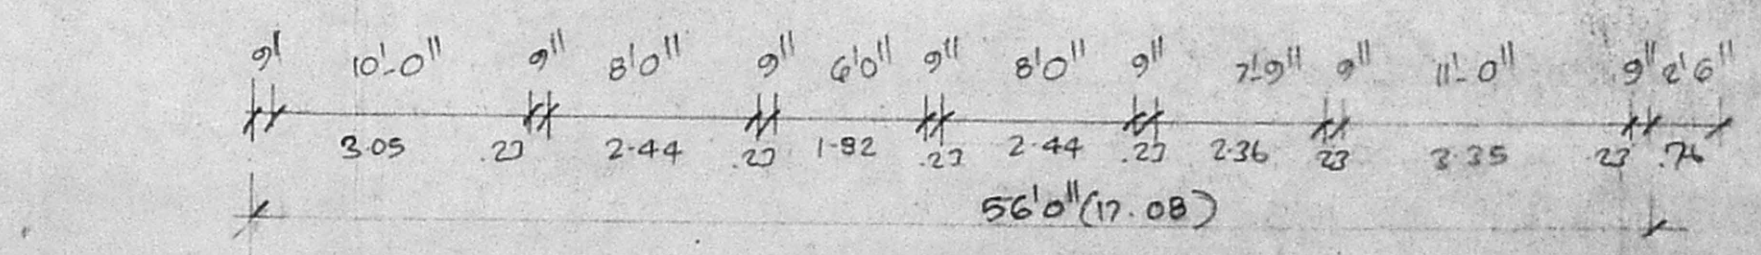 9' 10'-0" 9" 8'0" 9" 6'0" 9" 8'0" 9" 7'-9" 9" 11'-0" 9" 2'6"
3.05 .23 2.44 .23 1.82 .23 2.44 .23 2.36 .23 3.35 .23 .76
56'0" (17.08)